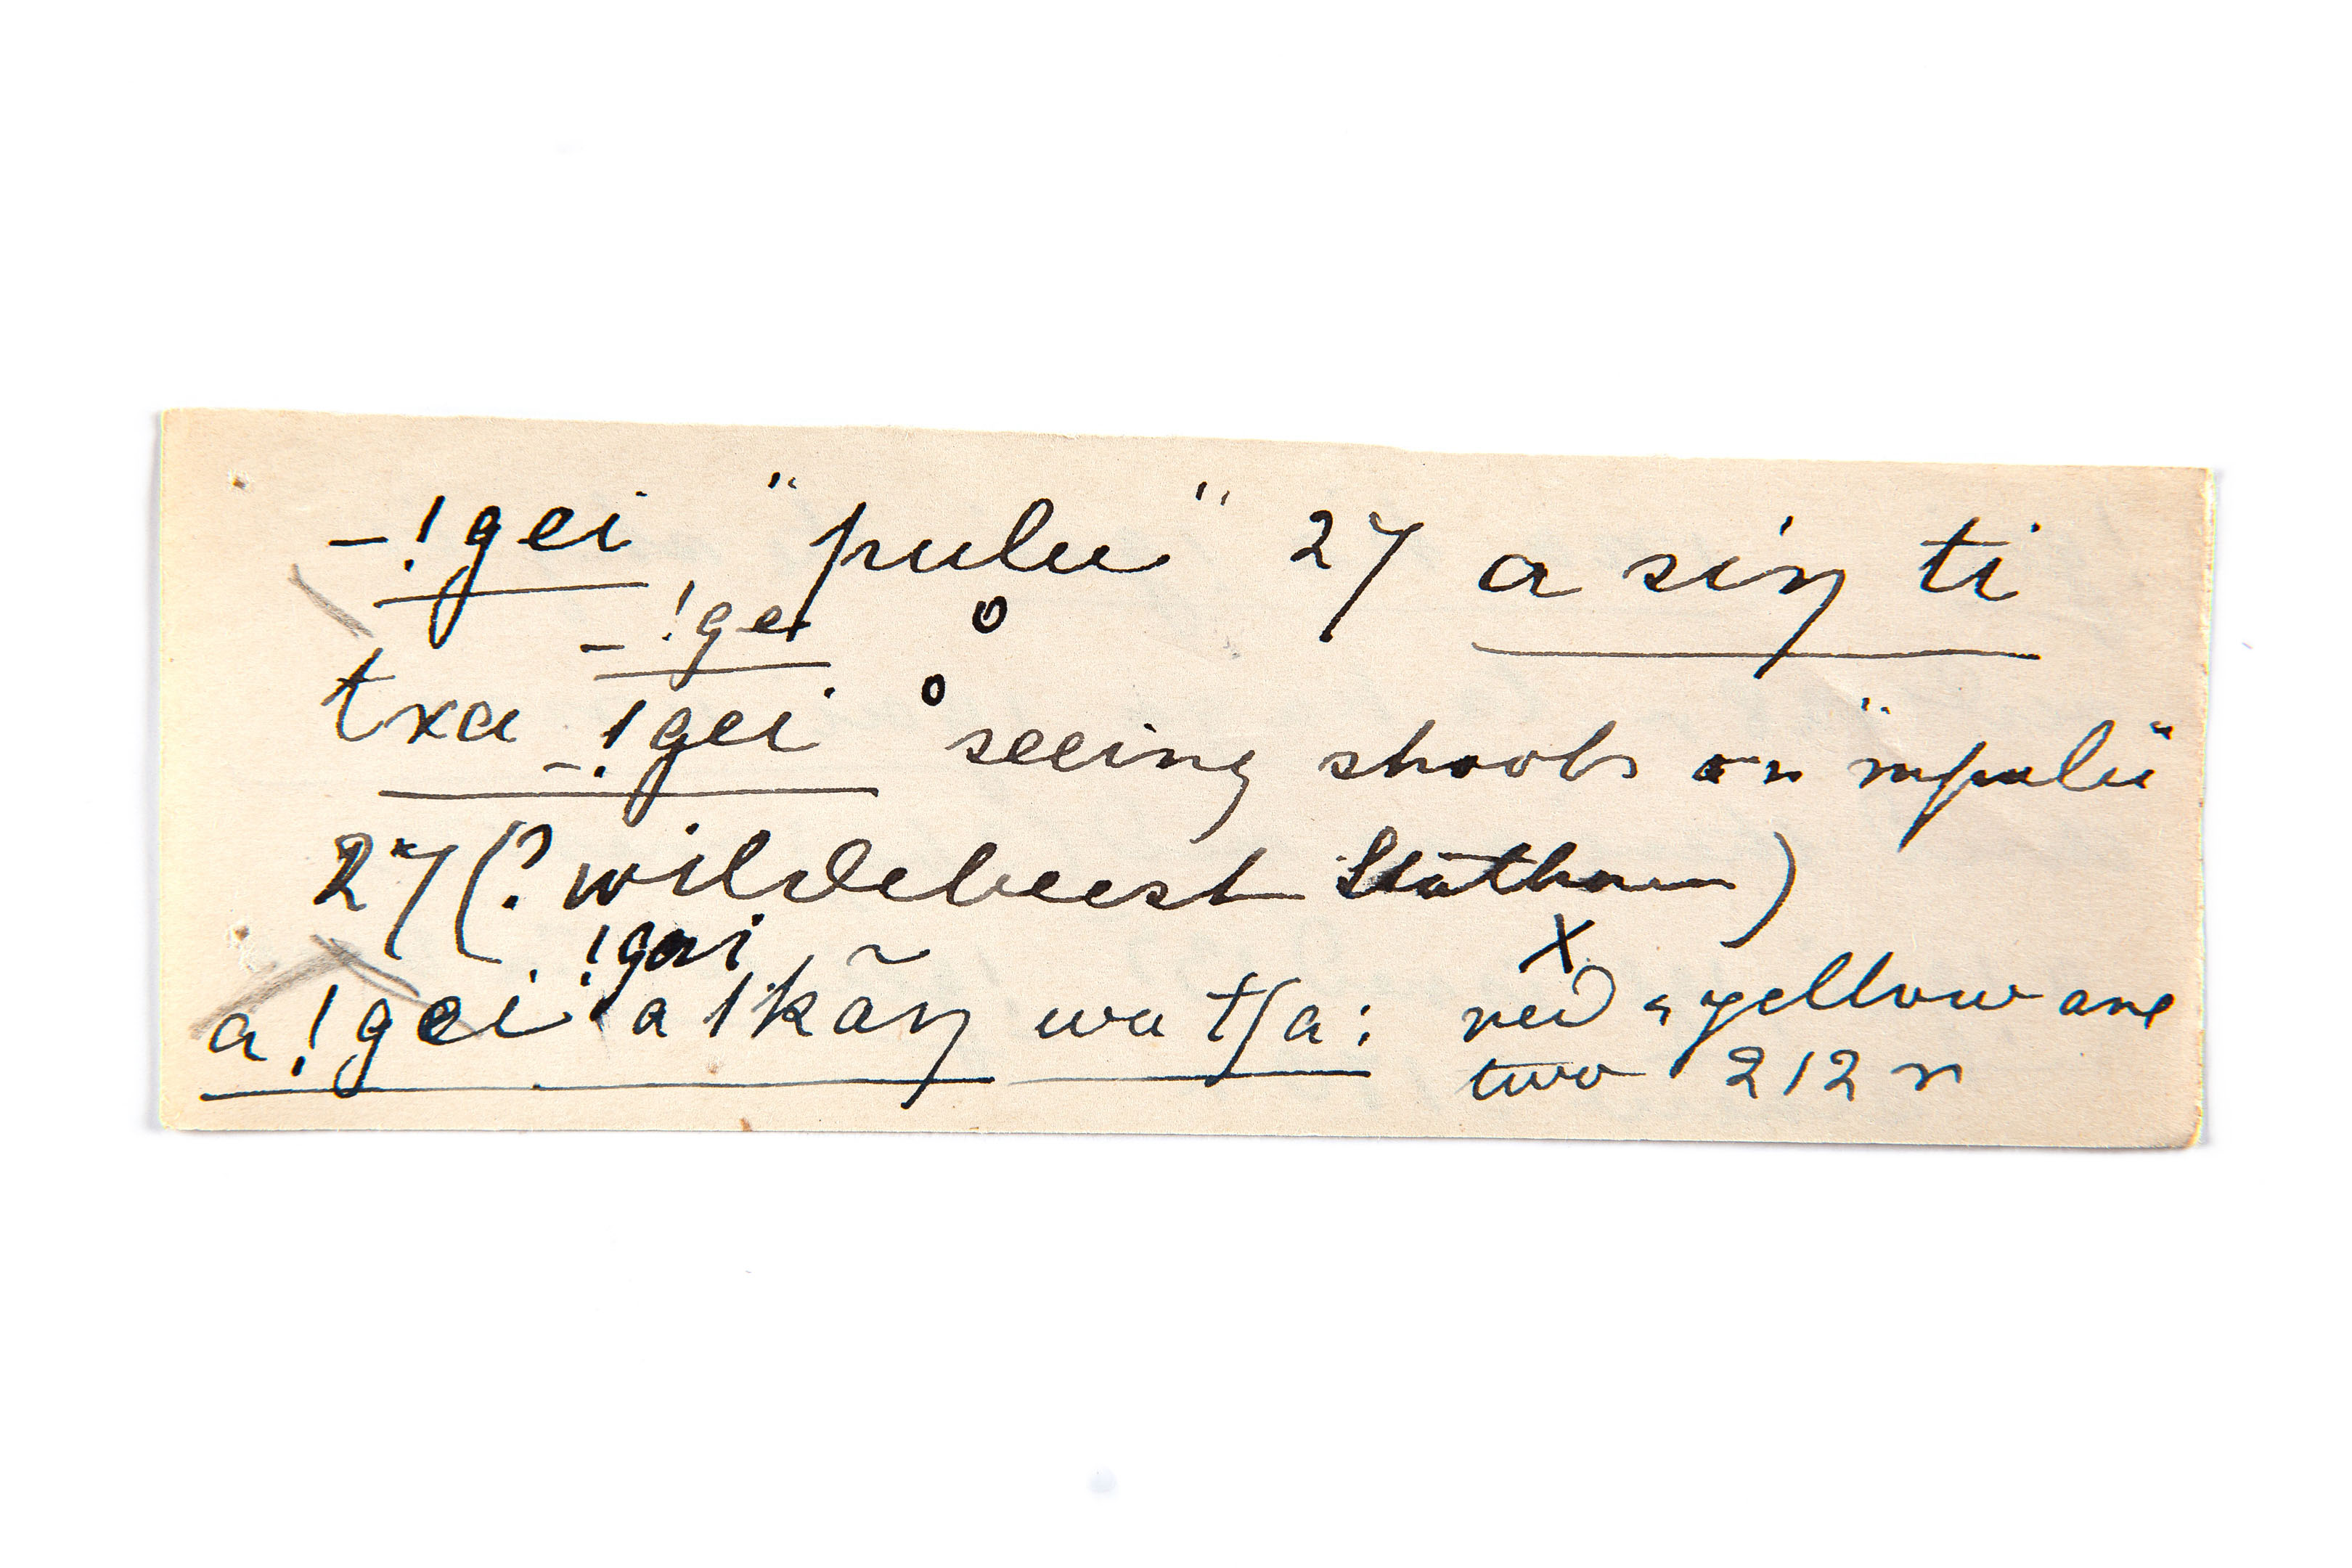 _!gei, "pulu" 27 a siŋ ti
_!gei
txa _!gei seeing shoots an "mpulu"
27 (? wildebeest Statham)
!gai
a !gei a ǀkãŋ wa tʃa: red & yellow are
two 212 r